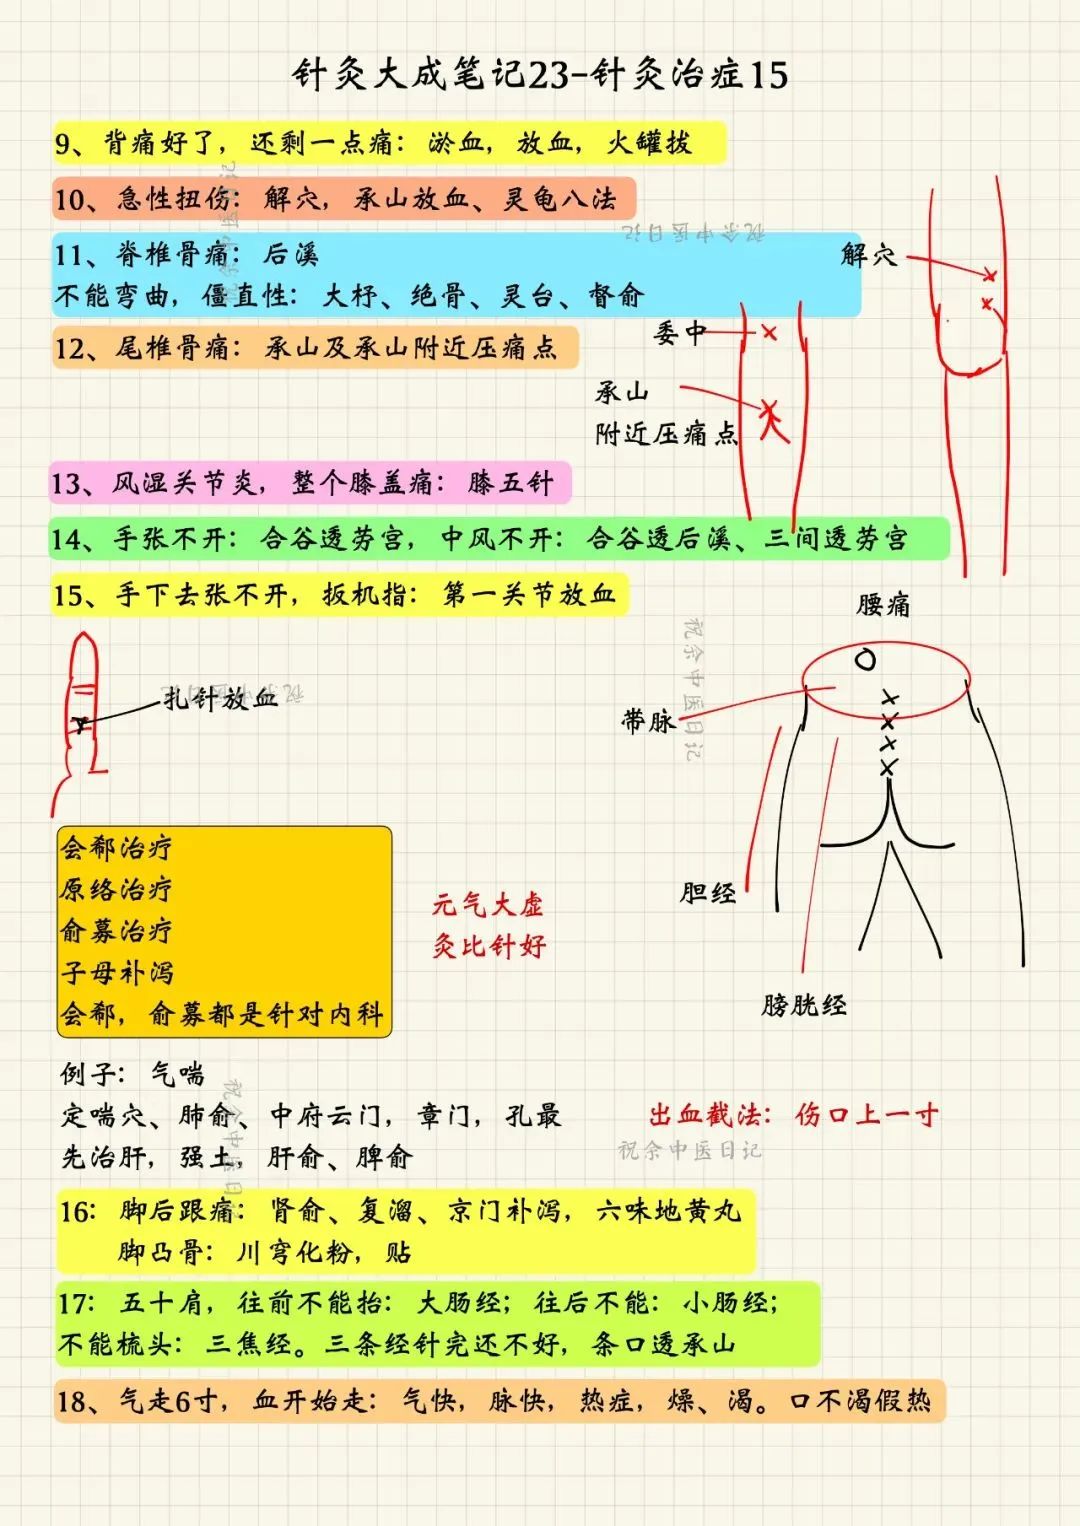 针灸大成笔记23-针灸治症15
9、背痛好了，还剩一点痛：淤血，放血，火罐拔
10、急性扭伤：解穴，承山放血、灵龟八法
祝余中医日记
11、脊椎骨痛：后溪
解穴
不能弯曲，僵直性：大杼、绝骨、灵台、督俞
委中
12、尾椎骨痛：承山及承山附近压痛点
承山
附近压痛点
13、风湿关节炎，整个膝盖痛：膝五针
14、手张不开：合谷透劳宫，中风不开：合谷透后溪、三间透劳宫
15、手下去张不开，扳机指：第一关节放血
腰痛
祝余中医日记
扎针放血
祝余中医日记
带脉
会郗治疗
原络治疗
俞募治疗
子母补泻
会郗，俞募都是针对内科
元气大虚
灸比针好
胆经
膀胱经
例子：气喘
定喘穴、肺俞、中府云门，章门，孔最
先治肝，强土，肝俞、脾俞
出血截法：伤口上一寸
祝余中医日记
祝余中医日记
16：脚后跟痛：肾俞、复溜、京门补泻，六味地黄丸
脚凸骨：川穹化粉，贴
17：五十肩，往前不能抬：大肠经；往后不能：小肠经；
不能梳头：三焦经。三条经针完还不好，条口透承山
18、气走6寸，血开始走：气快，脉快，热症，燥、渴。口不渴假热